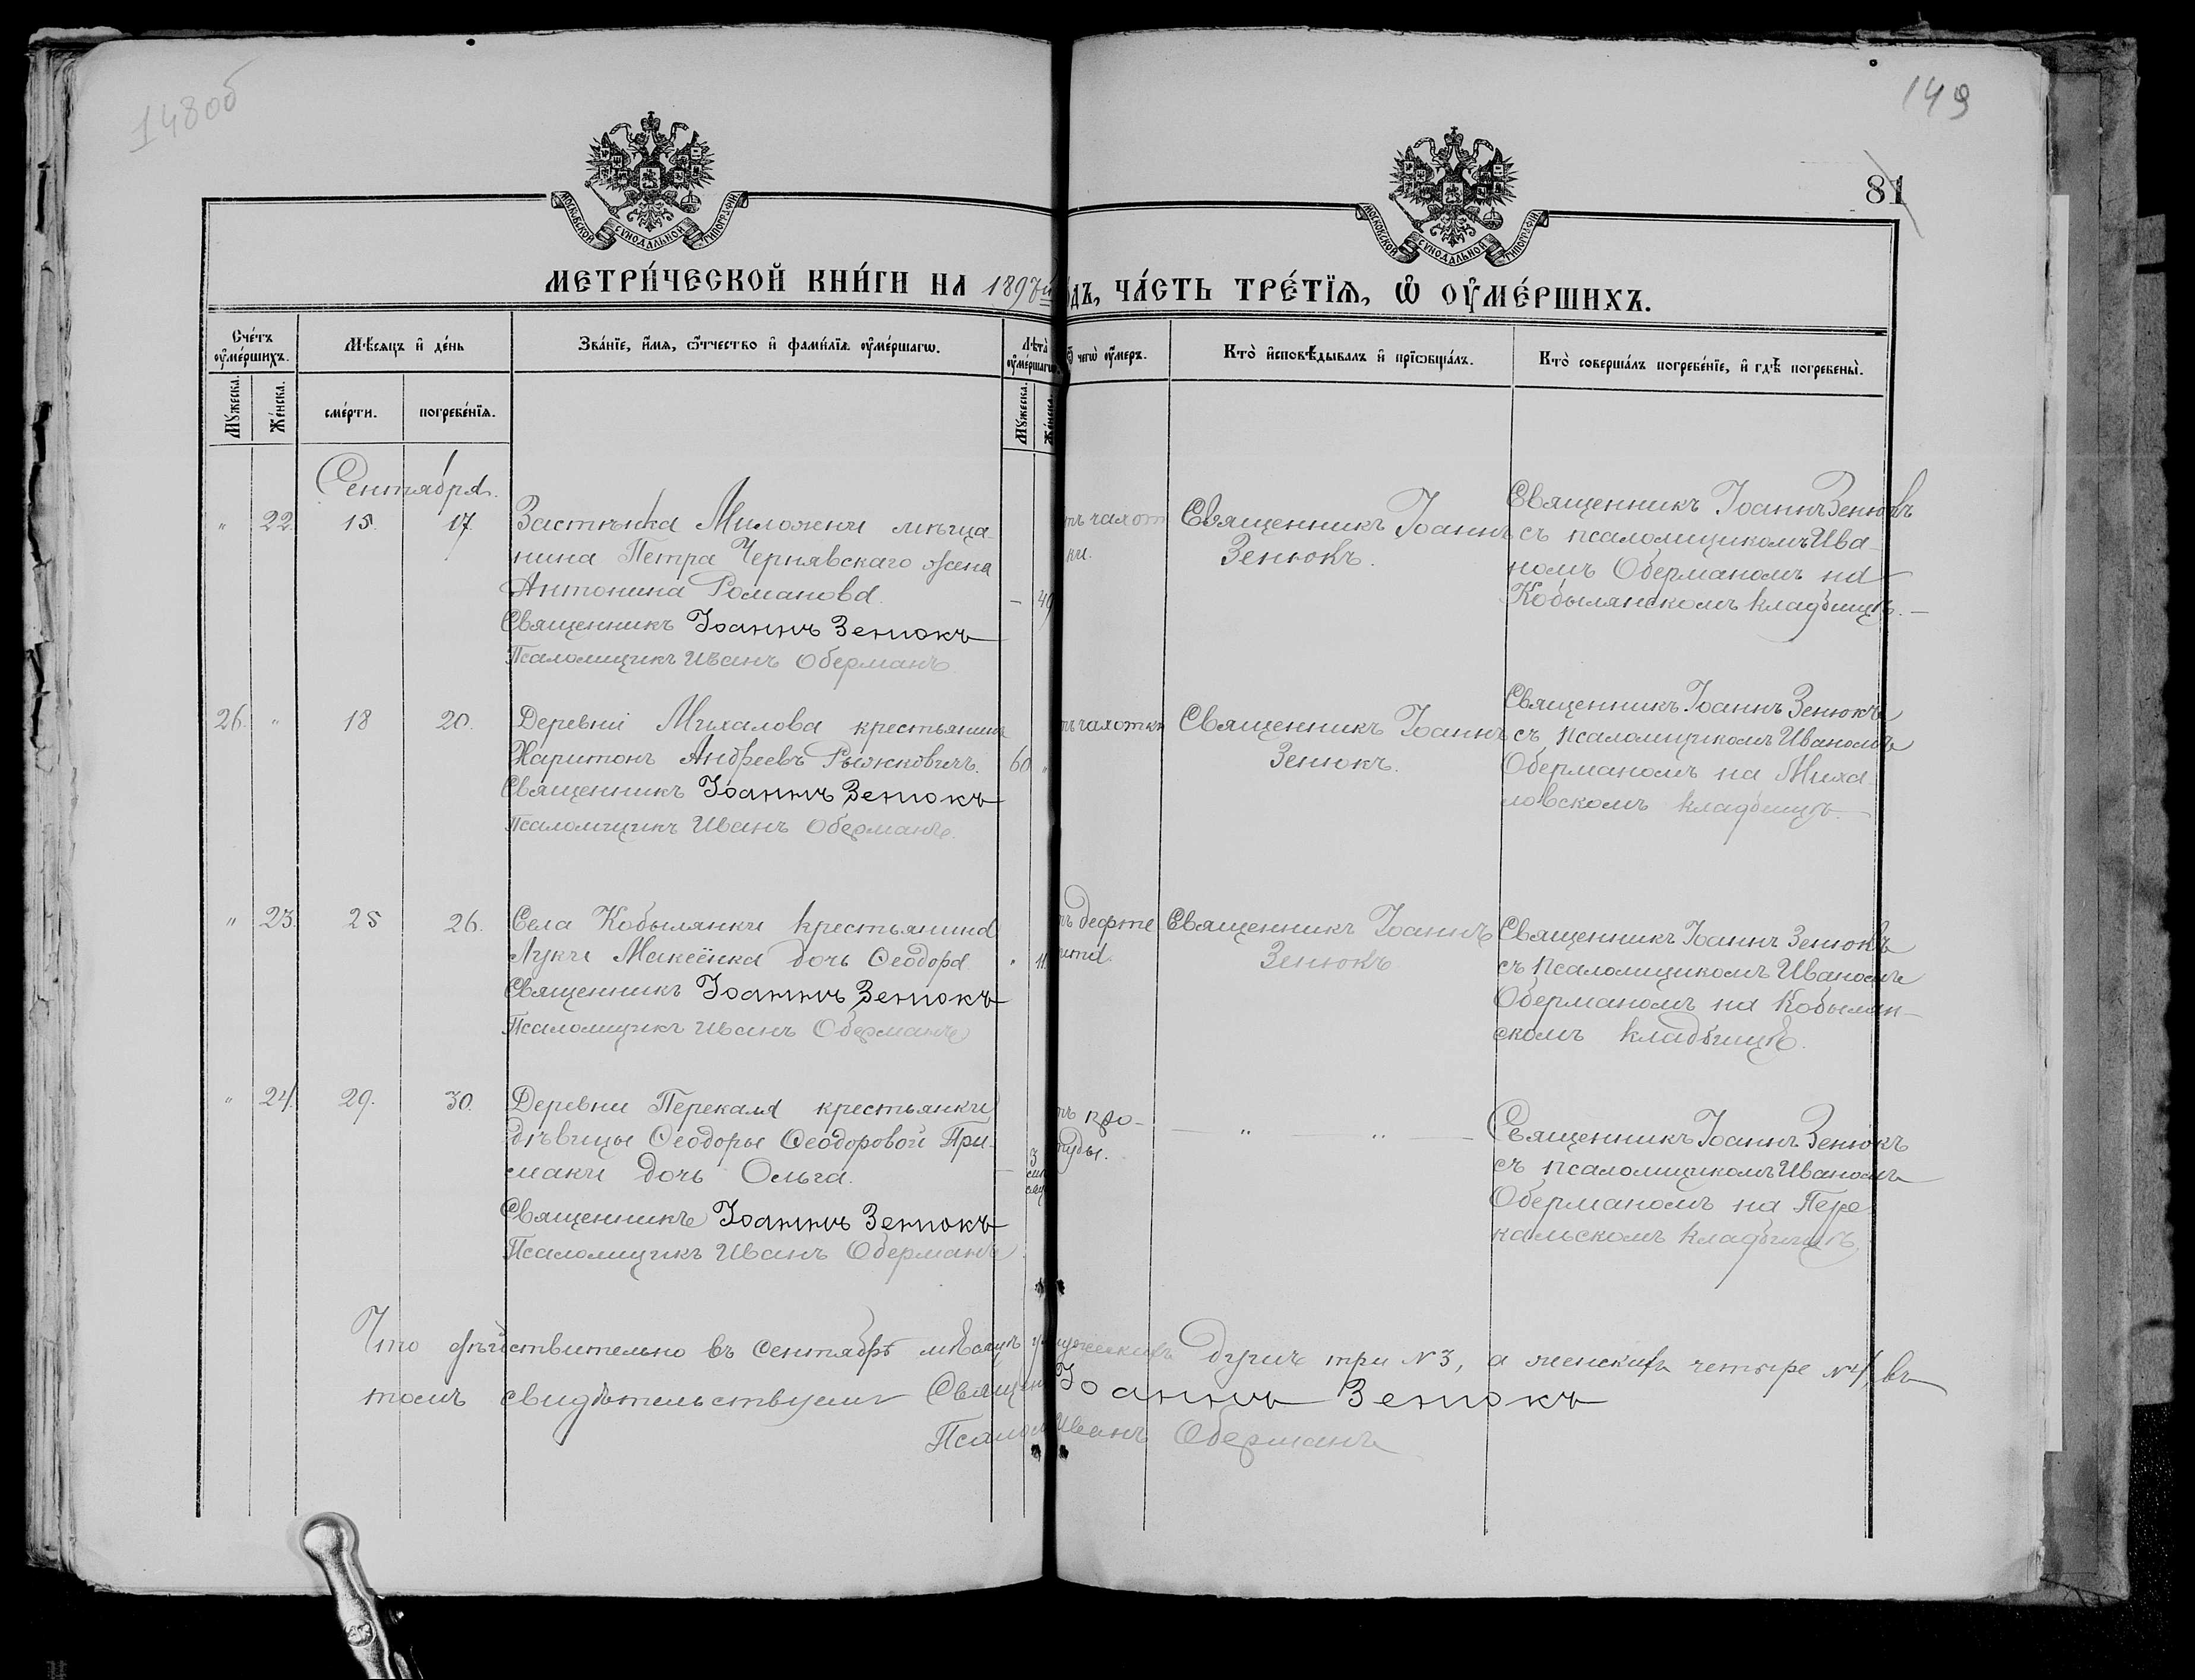 148об
149
81
МОСКОВСКОЙ СУНОДАЛЬНОЙ ТИПОГРАФІИ
МОСКОВСКОЙ СУНОДАЛЬНОЙ ТИПОГРАФІИ
МЕТРИ́ЧЕСКОЙ КНИ́ГИ НА 1897й
дъ, ЧА́СТЬ ТРЕ́ТЇѦ, Ѽ ОУ҆МЕ́РШИХЪ.
Сче́тъ оу҆ме́ршихъ.
Мѣ́сяцъ и҆ де́нь
Зва́нїе, и҆́мя, ѻ҆́тчество и҆ фами́лїя оу҆ме́ршагѡ.
Лѣта̀ оу҆ме́ршагѡ
Ѿ чегѡ̀ оу҆́меръ.
Кто̀ и҆сповѣ́дывалъ и҆ прїѡбща́лъ.
Кто̀ соверша́лъ погребе́нїе, и҆ гдѣ̀ погребены̀.
Мꙋ́жеска.
Же́нска.
сме́рти.
погребе́нїя.
Мꙋ́жеска.
Же́нска.
Сентября.
" 22. 15. 17. Застѣнка Миложени мѣща-
нина Петра Чернявскаго жена
Антонина Романова. — 49
Священникъ Іоаннъ Зенюкъ
Псаломщикъ Иванъ Оберманъ.
тъ чахот
ки.
Священникъ Іоаннъ
Зенюкъ.
Священникъ Іоаннъ Зенюкъ
съ псаломщикомъ Ива-
номъ Оберманомъ на
Кобылянскомъ кладбищѣ. —
26. " 18 20. Деревни Михалова крестьянинъ
Харитонъ Андреевъ 60 "
Священникъ Іоаннъ Зенюкъ
Псаломщикъ Иванъ Оберманъ.
тъ чахотки
Священникъ Іоаннъ
Зенюкъ.
Священникъ Іоаннъ Зенюкъ
съ псаломщикомъ Иваномъ
Оберманомъ на Миха-
ловскомъ кладбищѣ.
" 23. 25 26. Села Кобылянки крестьянина
Луки Макеёнка дочь Ѳеодора. " 11.
Священникъ Іоаннъ Зенюкъ
Псаломщикъ Иванъ Оберманъ
тъ дефте
рита.
Священникъ Іоаннъ
Зенюкъ
Священникъ Іоаннъ Зенюкъ
съ псаломщикомъ Иваномъ
Оберманомъ на Кобылян-
скомъ кладбищѣ.
" 24. 29. 30. Деревни Перекаля крестьянки
дѣвицы Ѳеодоры Ѳеодоровой При-
маки дочь Ольга. — 3
Священникъ Іоаннъ Зенюкъ
Псаломщикъ Иванъ Оберманъ.
тъ про-
студы.
— " — " —
Священникъ Іоаннъ Зенюкъ
съ псаломщикомъ Иваномъ
Оберманомъ на Пере-
кальскомъ кладбищѣ,
Что дѣйствительно въ Сентябрѣ мѣсяцѣ мужскихъ душъ три №3, а женскихъ четыре №4, въ
томъ свидѣтельствуемъ Священ Іоаннъ Зенюкъ
Псалом Иванъ Оберманъ